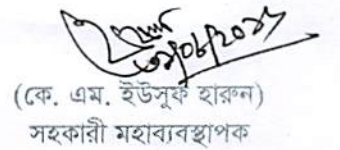 (কে. এম. ইউসুফ হারুন)
সহকারী মহাব্যবস্থাপক